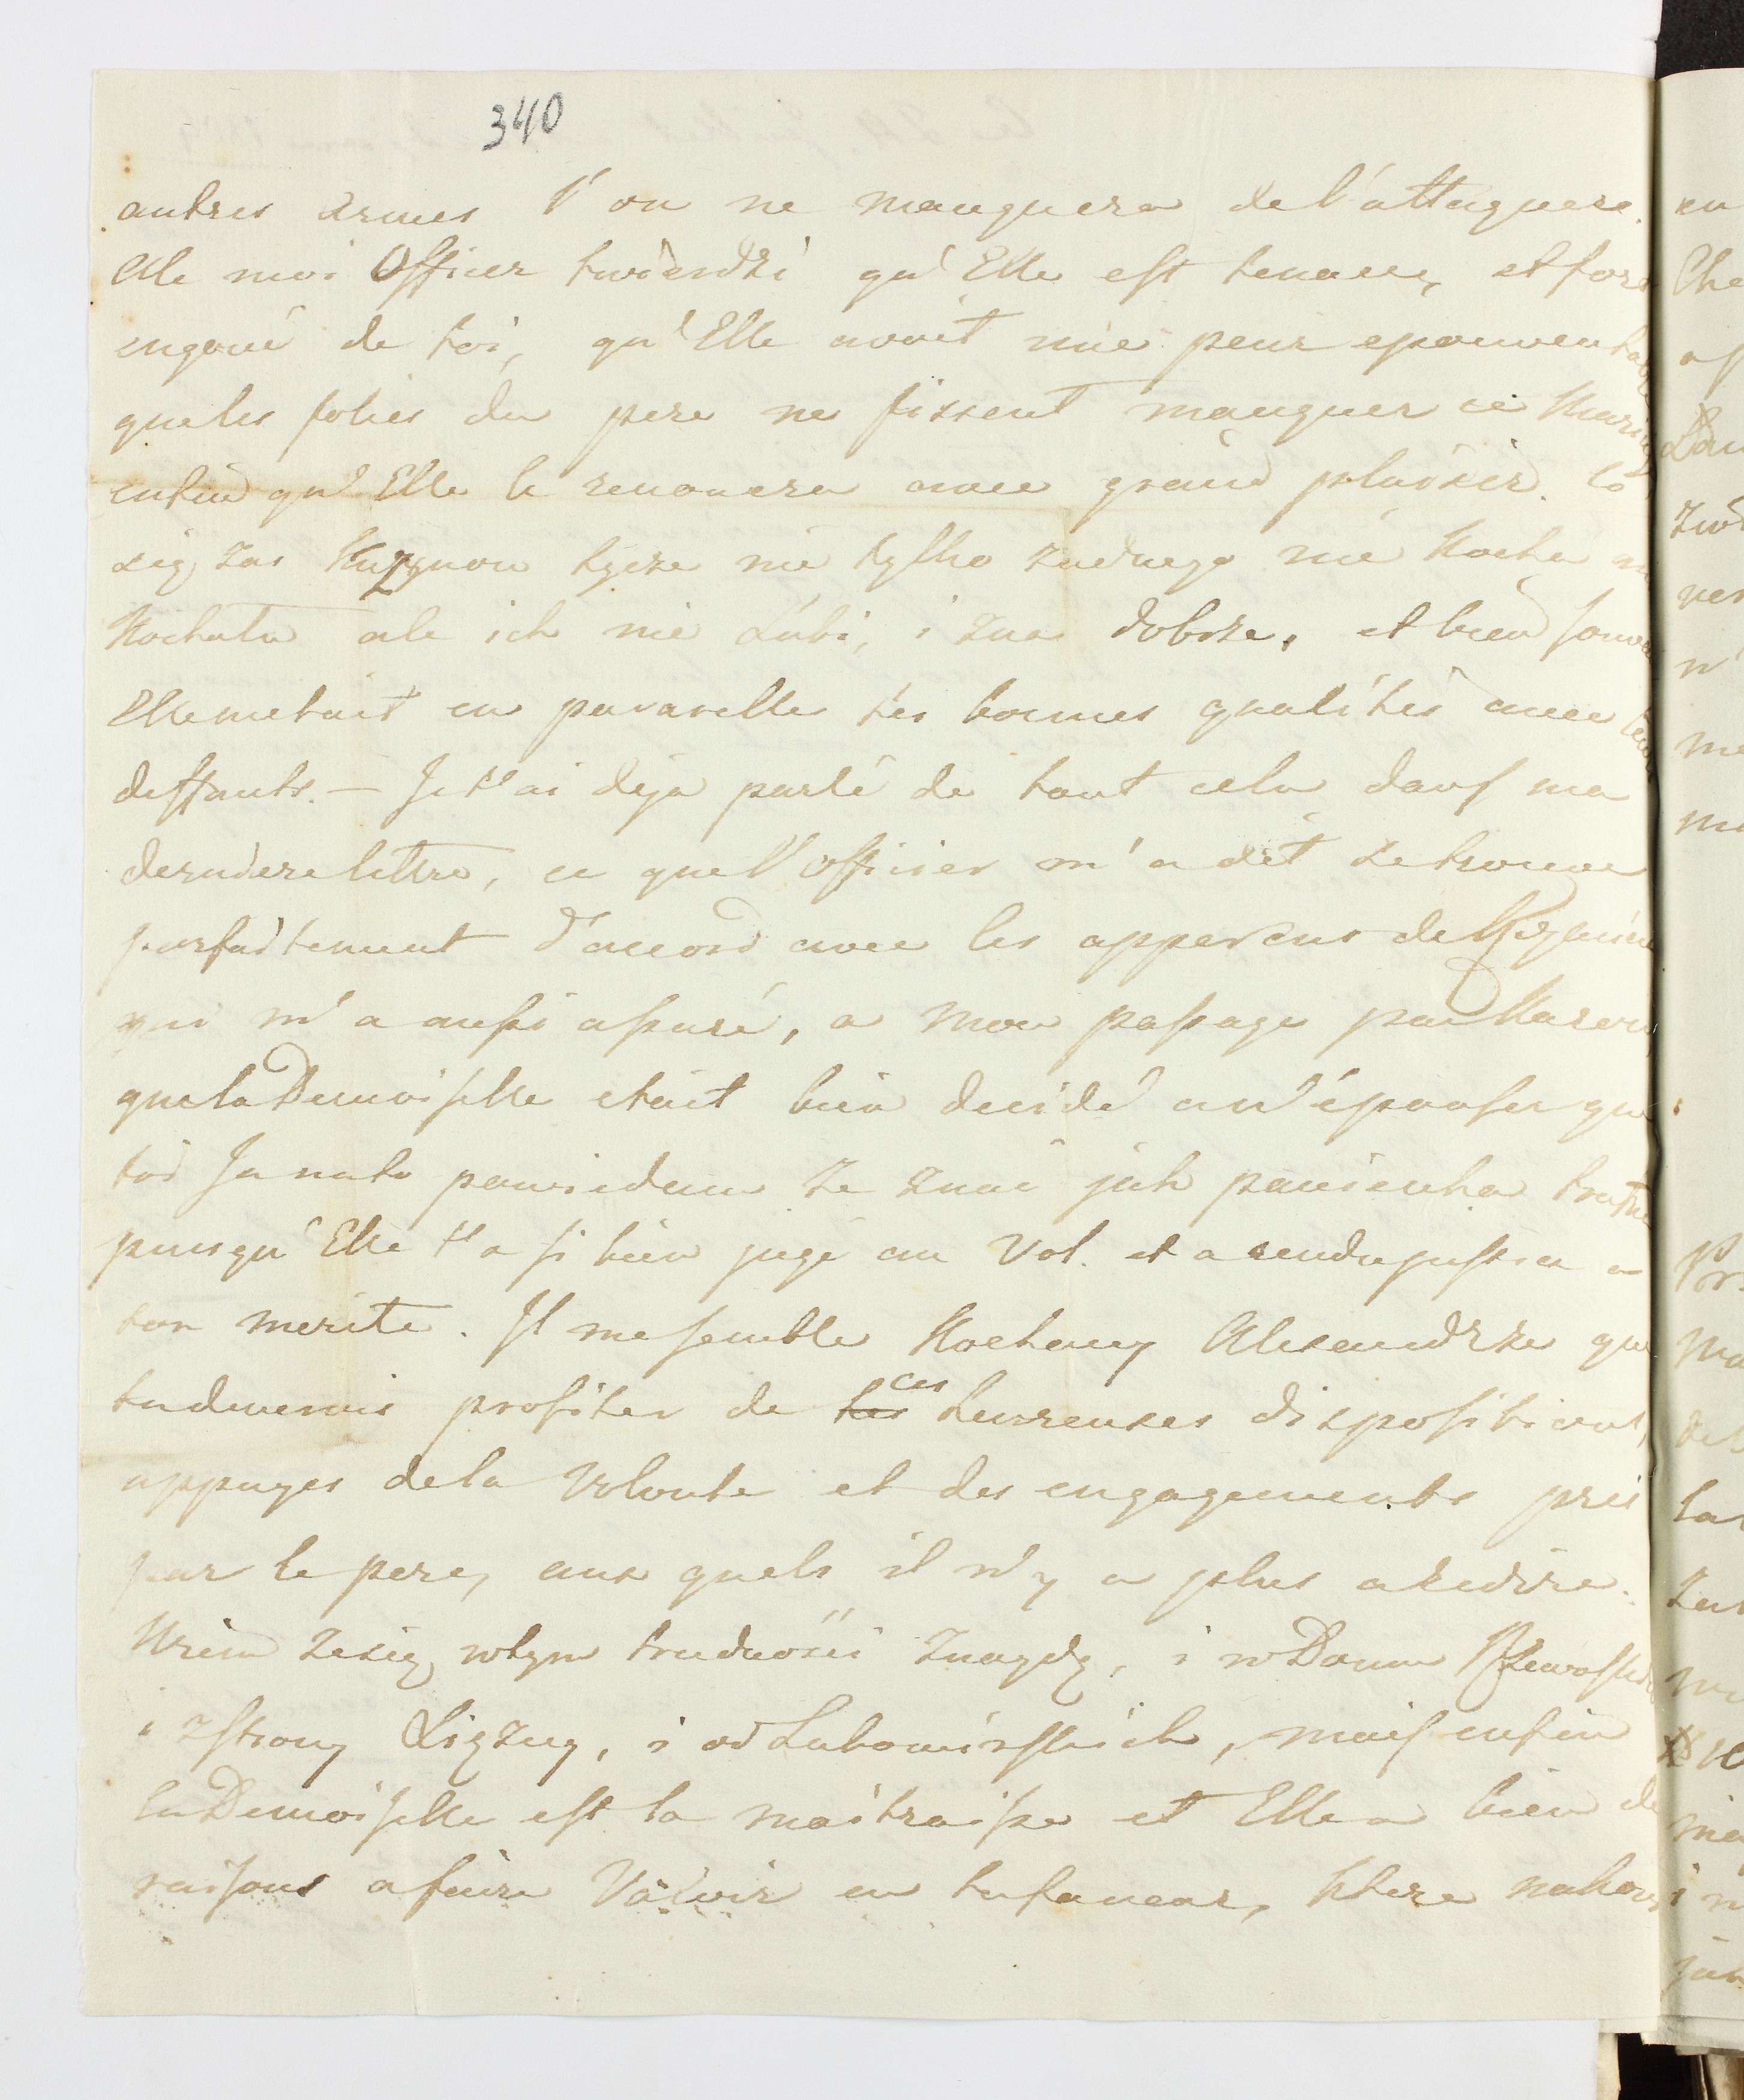 340
autres armes l'on ne manquera de l'attaquere.
Ale moi Officer twierdzi qu'Elle est tenace, et fort
engoué de toi, qu'Elle avait une peur epouventable
que les folies du pere ne fissent manquer ce Mariage
enfin qu'Elle le renouera avec grand plaisir. Co
się zas Kuzynow tycze nie tylko zadnego nie Kocha ani
Kochała ale ich nie Lubi, i zna dobrze, et bien souvent
Elle metait en paravelle tes bonnes qualités avec leurs
deffauts. — Je t'ai deja parlé de tout cela dans ma
derniere lettre, ce que l'officier m'a dit se trouve
parfaitement d'accord avec les appercus de
qui m'a aussi assuré, a mon passage par
que la Demoiselle etait bien decidé a n'épouser que
toi Ja na to powiedam ze znac jak panienka
puisqu'Elle t'a si bien jugé au Vol. et a rendu justice a
ton merite. Il me semble Kochany Alexandrze que
tu devrais profiter de ~~tes~~ ces heureuses dispositions,
appuyes de la Volonte et des engagements pris
par le pere, aux quels il n'y a plus a redire.
Wiem ze się w tym trudności znaydą, i w Domu
i z strony Xiężny, i od Lubomirskich, mais enfin
la Demoiselle est la maitraisse et Elle a bien de
raisons a faire Valoir en ta faveur, ktore nakoniec